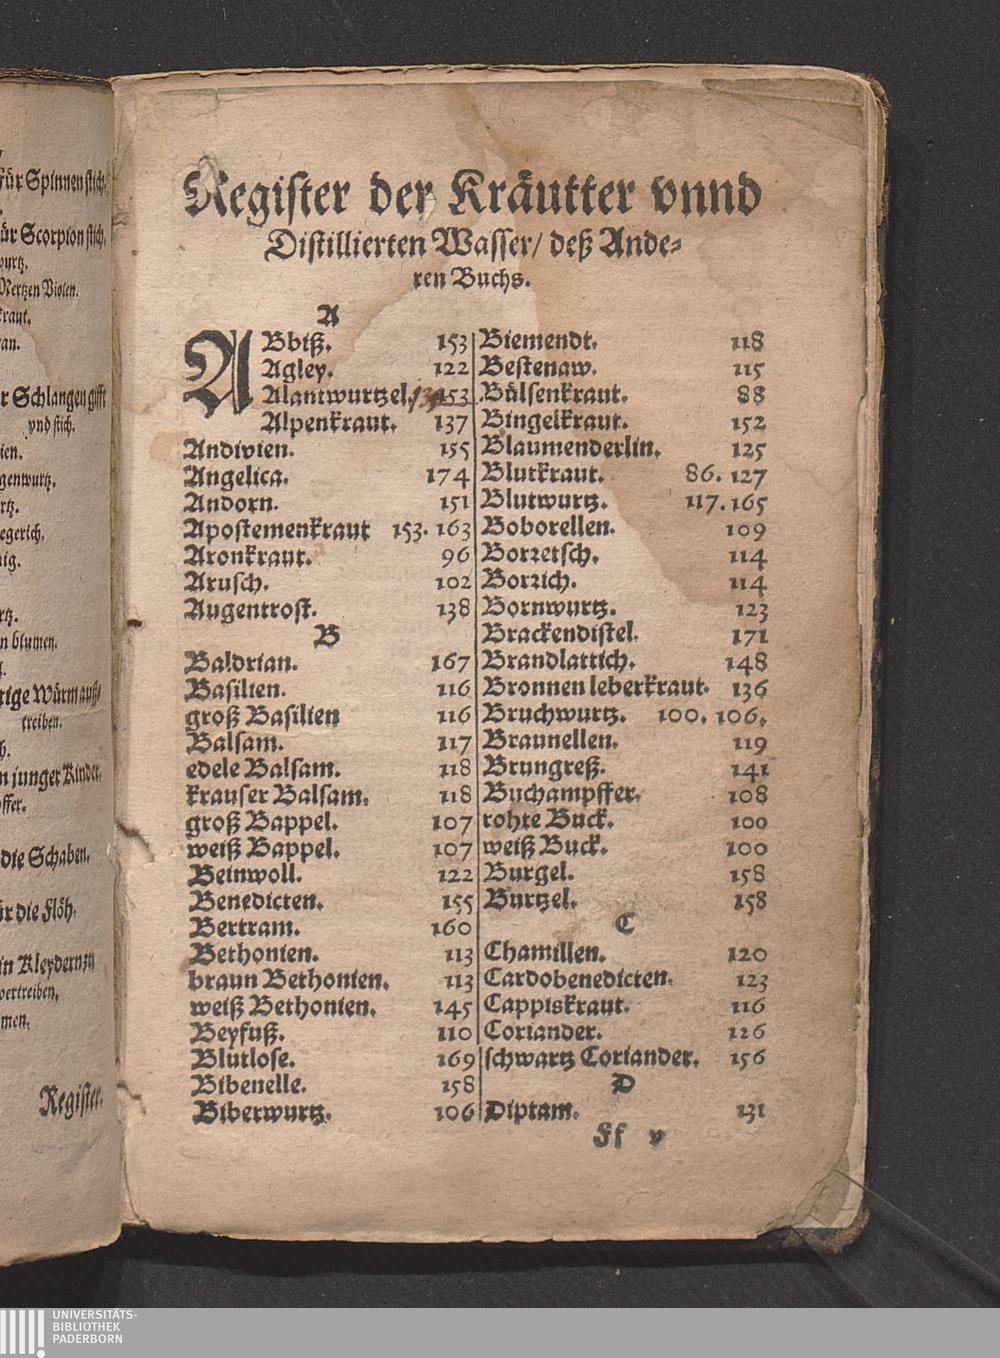 für Spinnen stich.
für Scorpion stich.
wurtz.
Mertzen Violen.
kraut.
an.
r Schlangen gifft
vnd stich.
ien.
genwurtz.
rtz.
egerich.
nig.
rtz.
n blumen.
treiben.
n junger Kinder.
ffer.
die Schaben.
ür die Flöh.
in Kleydern zu
vertreiben.
men.
Register.
Register der Kräutter vnnd
Distillierten Wasser/ deß Ande-
ren Buchs.
A
ABbiß. 153
Agley. 122
Alantwurtzel. 139 153
Alpenkraut. 137
Andivien. 155
Angelica. 174
Andorn. 151
Apostemenkraut 153. 163
Aronkraut. 96
Arusch. 102
Augentrost. 138
B
Baldrian. 167
Basilien. 116
groß Basilien 116
Balsam. 117
edele Balsam. 118
krauser Balsam. 118
groß Bappel. 107
weiß Bappel. 107
Beinwoll. 122
Benedicten. 155
Bertram. 160
Bethonien. 113
braun Bethonien. 113
weiß Bethonien. 145
Beyfuß. 110
Blutlose. 169
Bibenelle. 158
Biberwurtz. 106
Biemendt. 118
Bestenaw. 115
Bülsenkraut. 88
Bingelkraut. 152
Blaumenderlin. 125
Blutkraut. 86. 127
Blutwurtz. 117. 165
Boborellen. 109
Borretsch. 114
Borrich. 114
Bornwurtz. 123
Brackendistel. 171
Brandlattich. 148
Bronnen leberkraut. 136
Bruchwurtz. 100. 106.
Braunellen. 119
Brungreß. 141
Buchampffer. 108
rohte Buck. 100
weiß Buck. 100
Burgel. 158
Burtzel. 158
C
Chamillen. 120
Cardobenedicten. 123
Cappiskraut. 116
Coriander. 126
schwartz Coriander. 156
D
Diptam. 131
Ff v
UNIVERSITÄTS-
BIBLIOTHEK
PADERBORN